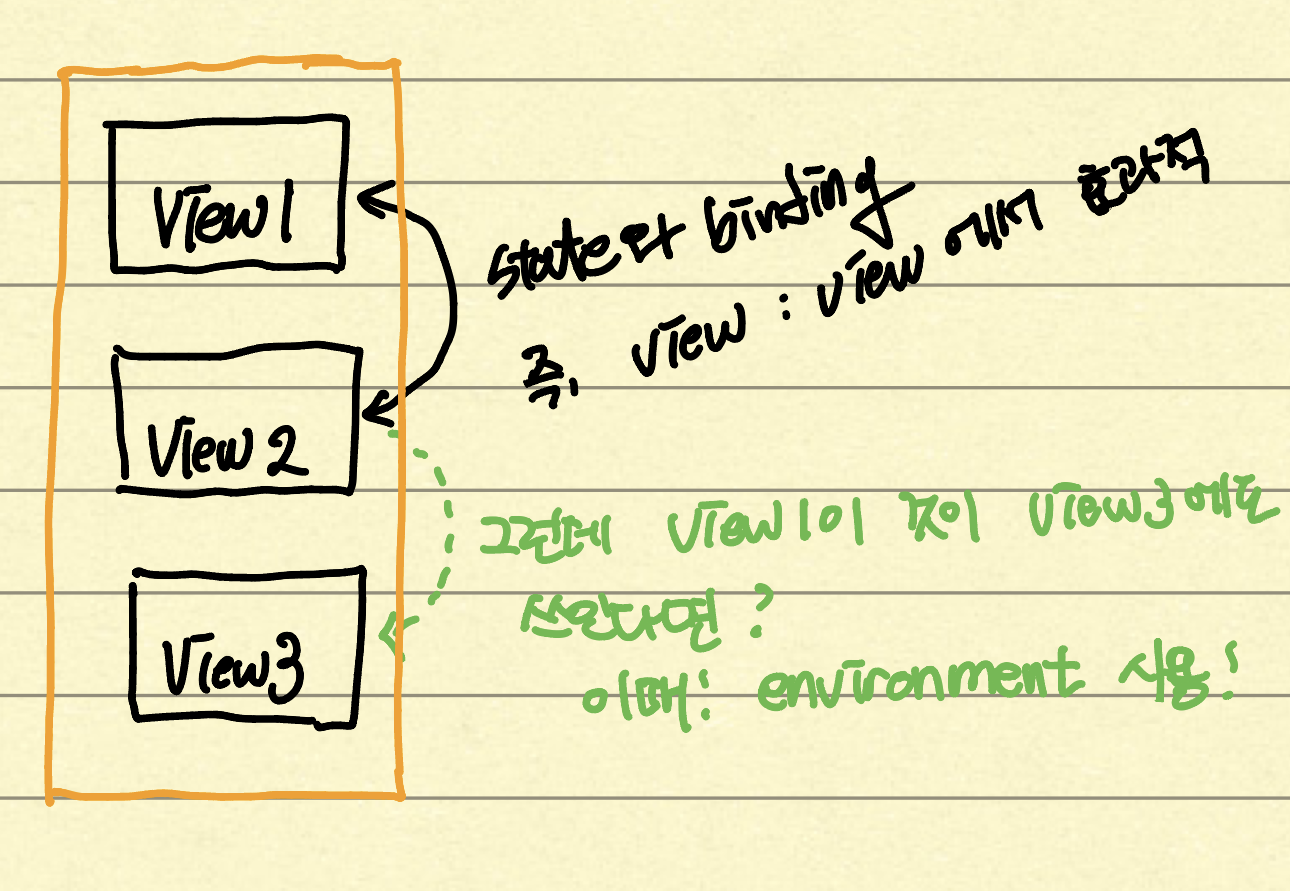 View1
State와 binding
즉, View : View 에서 효과적
View2
그런데 View1이 것이 View3에도
쓰인다면?
이때! environment 사용!
View3